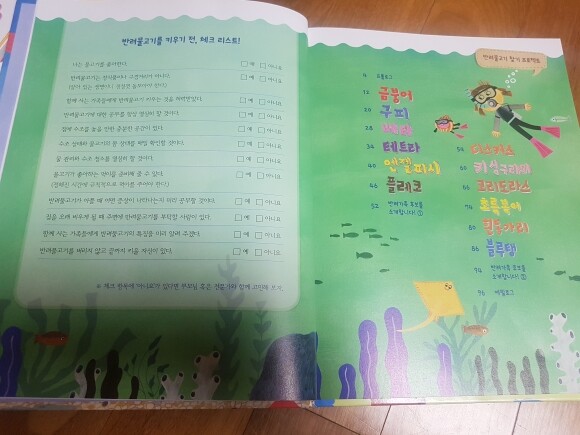 반려물고기를 키우기 전, 체크 리스트!
나는 물고기를 좋아한다. 예 아니요
반려물고기는 장식품이나 고정거리가 아니다. 예 아니요
함께 사는 가족들에게 반려물고기 키우는 것을 허락받았다. 예 아니요
반려물고기에 대한 공부를 항상 열심히 할 것이다. 예 아니요
집에 수조를 놓을 만한 충분한 공간이 있다. 예 아니요
수조 상태와 물고기의 몸 상태를 매일 확인할 것이다. 예 아니요
물 관리와 수조 청소를 열심히 할 것이다. 예 아니요
물고기가 좋아하는 먹이를 준비해 줄 수 있다. 예 아니요
(정해진 시간에 규칙적으로 먹이를 주어야 한다.)
반려물고기가 아플 때 어떤 증상이 나타나는지 미리 공부할 것이다. 예 아니요
집을 오래 비우게 될 때 주변에 반려물고기를 부탁할 사람이 있다. 예 아니요
함께 사는 가족들에게 반려물고기의 특징을 미리 알려 주겠다. 예 아니요
반려물고기를 버리지 않고 끝까지 키울 자신이 있다. 예 아니요
※ 체크 항목에 '아니요'가 있다면 부모님 혹은 전문가와 함께 고민해 보자.
반려물고기 찾기 프로젝트
프롤로그
12 금붕어
구피
28 베타
34 테트라
40 엔젤피시
46 플레코
52 반려가족 후보를
소개합니다! ①
54 디스커스
키싱구라미
66 코리도라스
초록복어
줄쿠가리
86 블루탱
94 반려가족 후보를
소개합니다! ②
96 에필로그